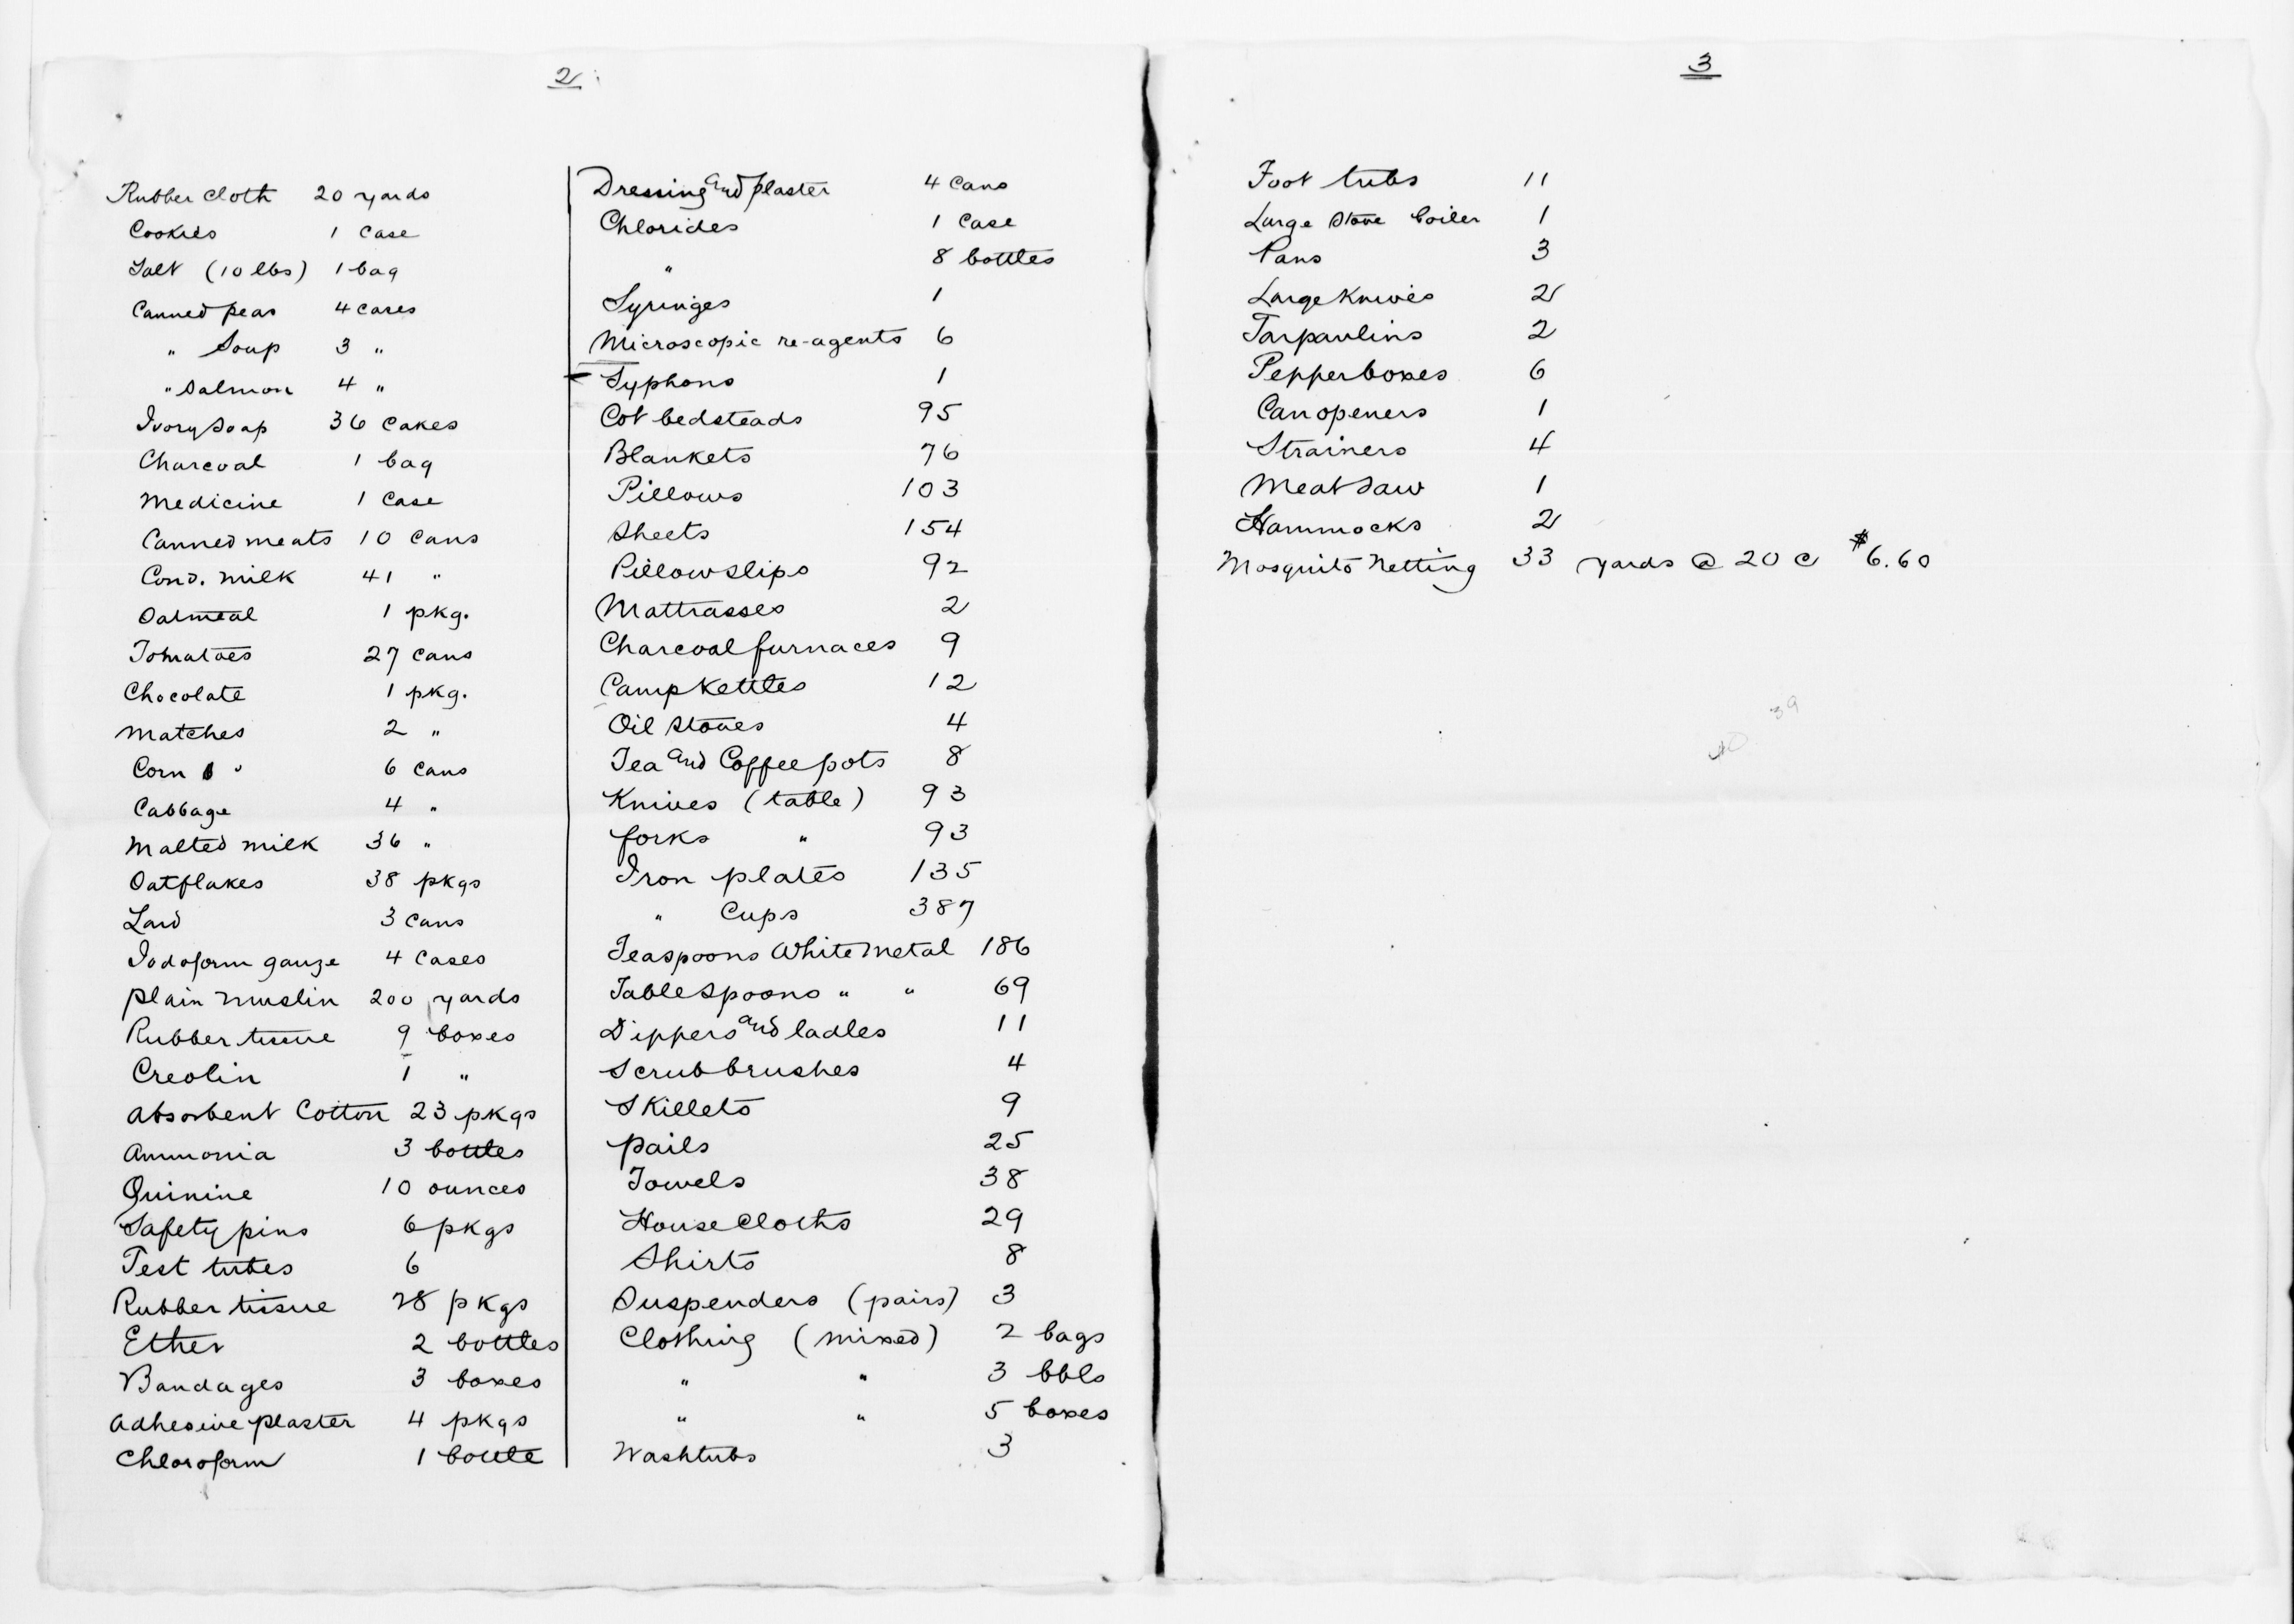 2
Rubber cloth 20 yards
Cookies 1 case
Salt (10 lbs) 1 bag
Canned peas 4 cases
" Soup 3 "
" Salmon 4 "
Ivory Soap 36 cakes
Charcoal 1 bag
Medicine 1 case
Canned meats 10 cans
Cond. milk 41 "
Oatmeal 1 pkg.
Tomatoes 27 cans
Chocolate 1 pkg.
Matches 2 "
Corn 6 cans
Cabbage 4 "
Malted milk 36 "
Oatflakes 38 pkgs
Lard 3 cans
Iodoform gauze 4 cases
plain muslin 200 yards
Rubber tissue 9 boxes
Creolin 1 "
Absorbent Cotton 23 pkgs
Ammonia 3 bottles
Quinine 10 ounces
Safety pins 6 pkgs
Test tubes 6
Rubber tissue 28 pkgs
Ether 2 bottles
Bandages 3 boxes
Adhesive plaster 4 pkgs
Chloroform 1 bottle
Dressing and plaster 4 cans
Chlorides 1 case
" 8 bottles
Syringes 1
Microscopic re-agents 6
Syphons 1
Cot bedsteads 95
Blankets 76
Pillows 103
Sheets 154
Pillowslips 92
Mattrasses 2
Charcoal furnaces 9
Camp Kettles 12
Oil stoves 4
Tea and Coffee pots 8
Knives (table) 93
forks " 93
Iron plates 135
" Cups 387
Teaspoons White metal 186
Tablespoons " " 69
Dippers and ladles 11
Scrub brushes 4
Skillets 9
pails 25
Towels 38
House Cloths 29
Shirts 8
Suspenders (pairs) 3
Clothing (mixed) 2 bags
" " 3 bbls
" " 5 boxes
Washtubs 3
3
Foot tubs 11
Large stove boiler 1
Pans 3
Large Knives 2
Tarpaulins 2
Pepperboxes 6
Can openers 1
Strainers 4
Meat saw 1
Hammocks 2
Mosquito netting 33 yards @ 20 c $6.60
39